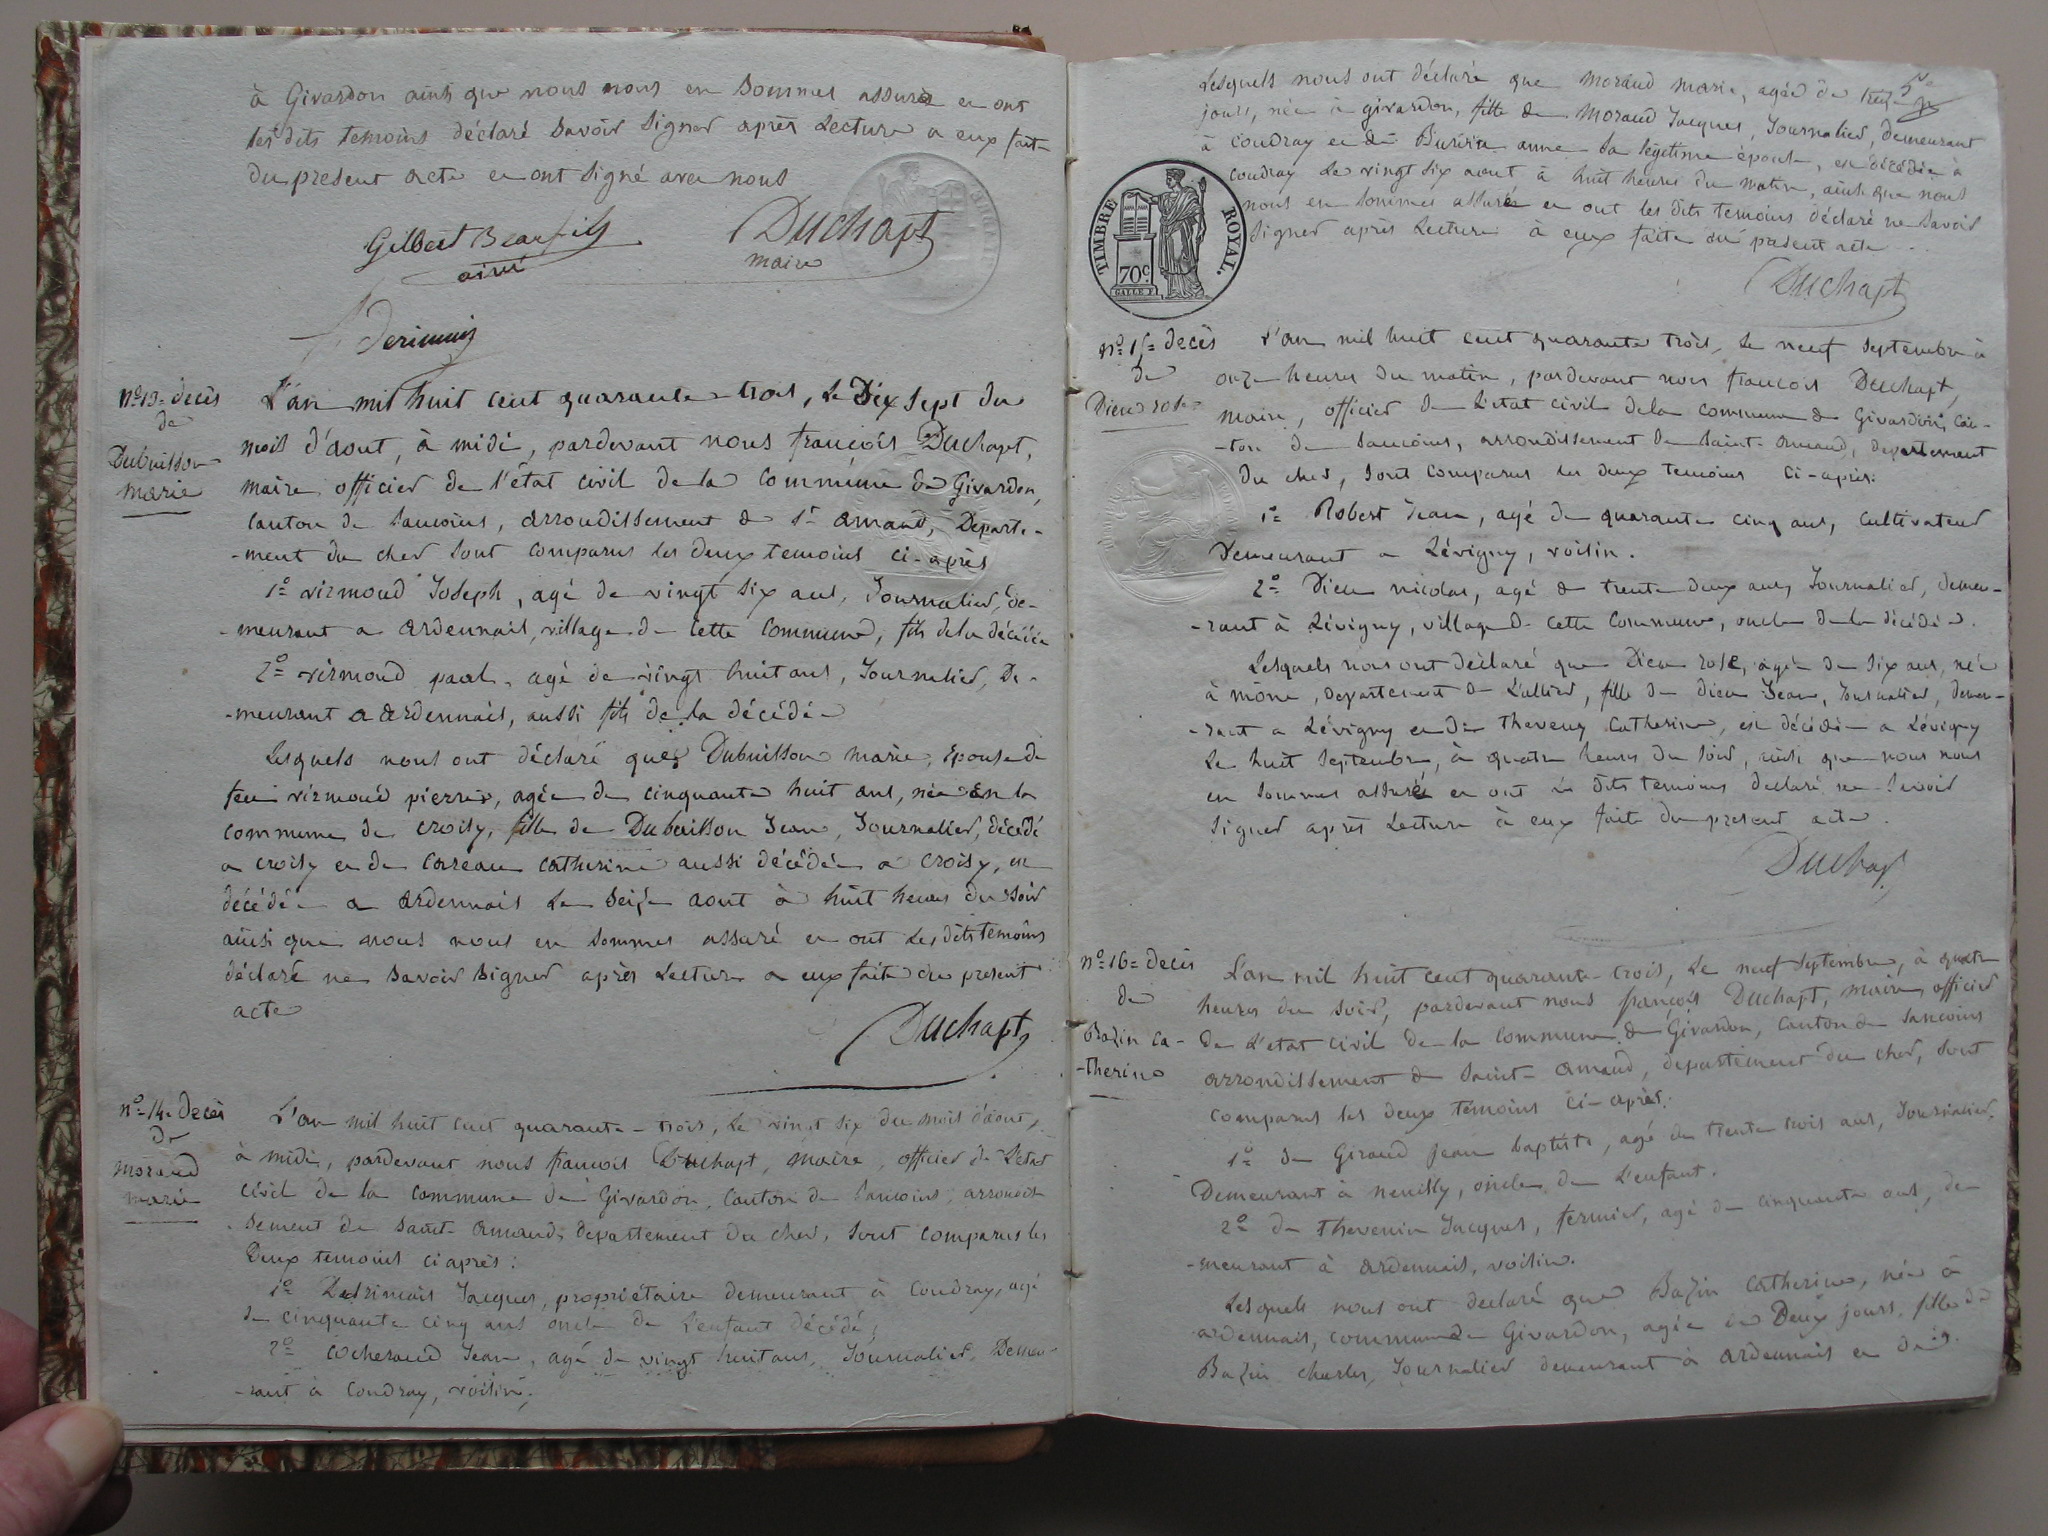 à Givardon ainsi que nous nous en sommes assuré en ont
les dits temoins déclaré savoir signer après Lecture a eux faite
du present acte en ont signé avec nous
Gilbert Beaufils
ainé
Duchapt
maire
nº 13 = decès
de
Dubuisson
marie
L'an mil huit cent quarante-trois, le Dix sept du
mois d'aout, à midi, pardevant nous françois Duchapt,
maire, officier de l'état civil de la commune de Givardon,
Canton de Sancoins, arrondissement de St amand, Departe-
-ment du cher sont comparus les deux temoins ci-après
1º virmoud Joseph, agé de vingt six ans, Journalier, de-
-meurant a ardennais, village de cette commune, fils de la décédée
2º virmoud paul, agé de vingt huit ans, Journalier, De-
-meurant a ardennais, aussi fils de la décédée
Lesquels nous ont déclaré que Dubuisson marie, Epouse de
feu virmoud pierre, agée de cinquante huit ans, née en la
commune de croisy, fille de Dubuisson Jean, Journalier, décédé
a croisy et de Catherine aussi décédée a croisy, est
décédée a ardennais le seize aout à huit heures du soir
ainsi que nous nous en sommes assuré en ont les dits temoins
déclaré ne savoir signer après Lecture a eux faite du present
acte
Duchapt
nº 14 = decès
de
moraud
marie
L'an mil huit cent quarante-trois, le vingt six du mois d'aout,
à midi, pardevant nous francois Duchapt, maire, officier de L'etat
civil de la commune de Givardon, Canton de Sancoins, arrondis-
-sement de saint-amand, departement du cher, sont comparus les
Deux temoins ci après :
1º Jacques, propriétaire demeurant à Coudray, agé
de cinquante cinq ans oncle de l'enfant décédé,
2º cocheraud Jean, agé de vingt huit ans, Journalier, Demeu-
-rant à Coudray, voisin,
5
Lesquels nous ont déclaré que moraud marie, agée de treize
jours, née à givardon, fille de moraud Jacques, Journalier, demeurant
à coudray et de anne sa légitime épouse, est décédée à
coudray le vingt six aout à huit heures du matin, ainsi que nous
nous en sommes assuré en ont les dits temoins déclaré ne savoir
signer après Lecture à eux faite du présent acte.
Duchapt
TIMBRE ROYAL.
70c.
GALLE F.
nº 15 = decès
de
Dieu rose
L'an mil huit cent quarante trois, le neuf septembre à
onze heures du matin, pardevant nous francois Duchapt,
maire, officier de L'etat civil de la commune de Givardon, can-
-ton de Sancoins, arrondissement de saint-amand, departement
du cher, sont comparus les deux temoins ci-après:
1º Robert Jean, agé de quarante cinq ans, cultivateur
Demeurant a Lévigny, voisin.
2º Dieu nicolas, agé de trente deux ans, Journalier, demeu-
-rant à Lévigny, village de cette commune, oncle de la décédée.
Lesquels nous ont déclaré que Dieu rose, agée de six ans, née
à mône, departement de L'allier, fille de Dieu Jean, Journalier, demeu-
-rant a Lévigny et de Catherine, est décédée a Lévigny
le huit septembre, à quatre heures du soir, ainsi que nous nous
en sommes assuré en ont les dits temoins declaré ne savoir
signer après Lecture à eux faite du present acte.
Duchapt
nº 16 = decès
de
Bazin ca-
-therine
L'an mil huit cent quarante-trois, le neuf septembre, à quatre
heures du soir, pardevant nous françois Duchapt, maire, officier
De L'etat civil de la commune de Givardon, Canton de Sancoins
arrondissement de saint-amand, departement du cher, sont
comparus les deux temoins ci-après:
1º de Giraud Jean baptiste, agé de trente trois ans, Journalier,
Demeurant à neuilly, oncle de L'enfant.
2º de thevenin Jacques, fermier, agé de cinquante ans, de-
-meurant à ardennais, voisin.
Lesquels nous ont declaré que Bazin Catherine, née à
ardennais, commune de Givardon, agée de Deux jours, fille de
Bazin charles, Journalier demeurant à ardennais et de